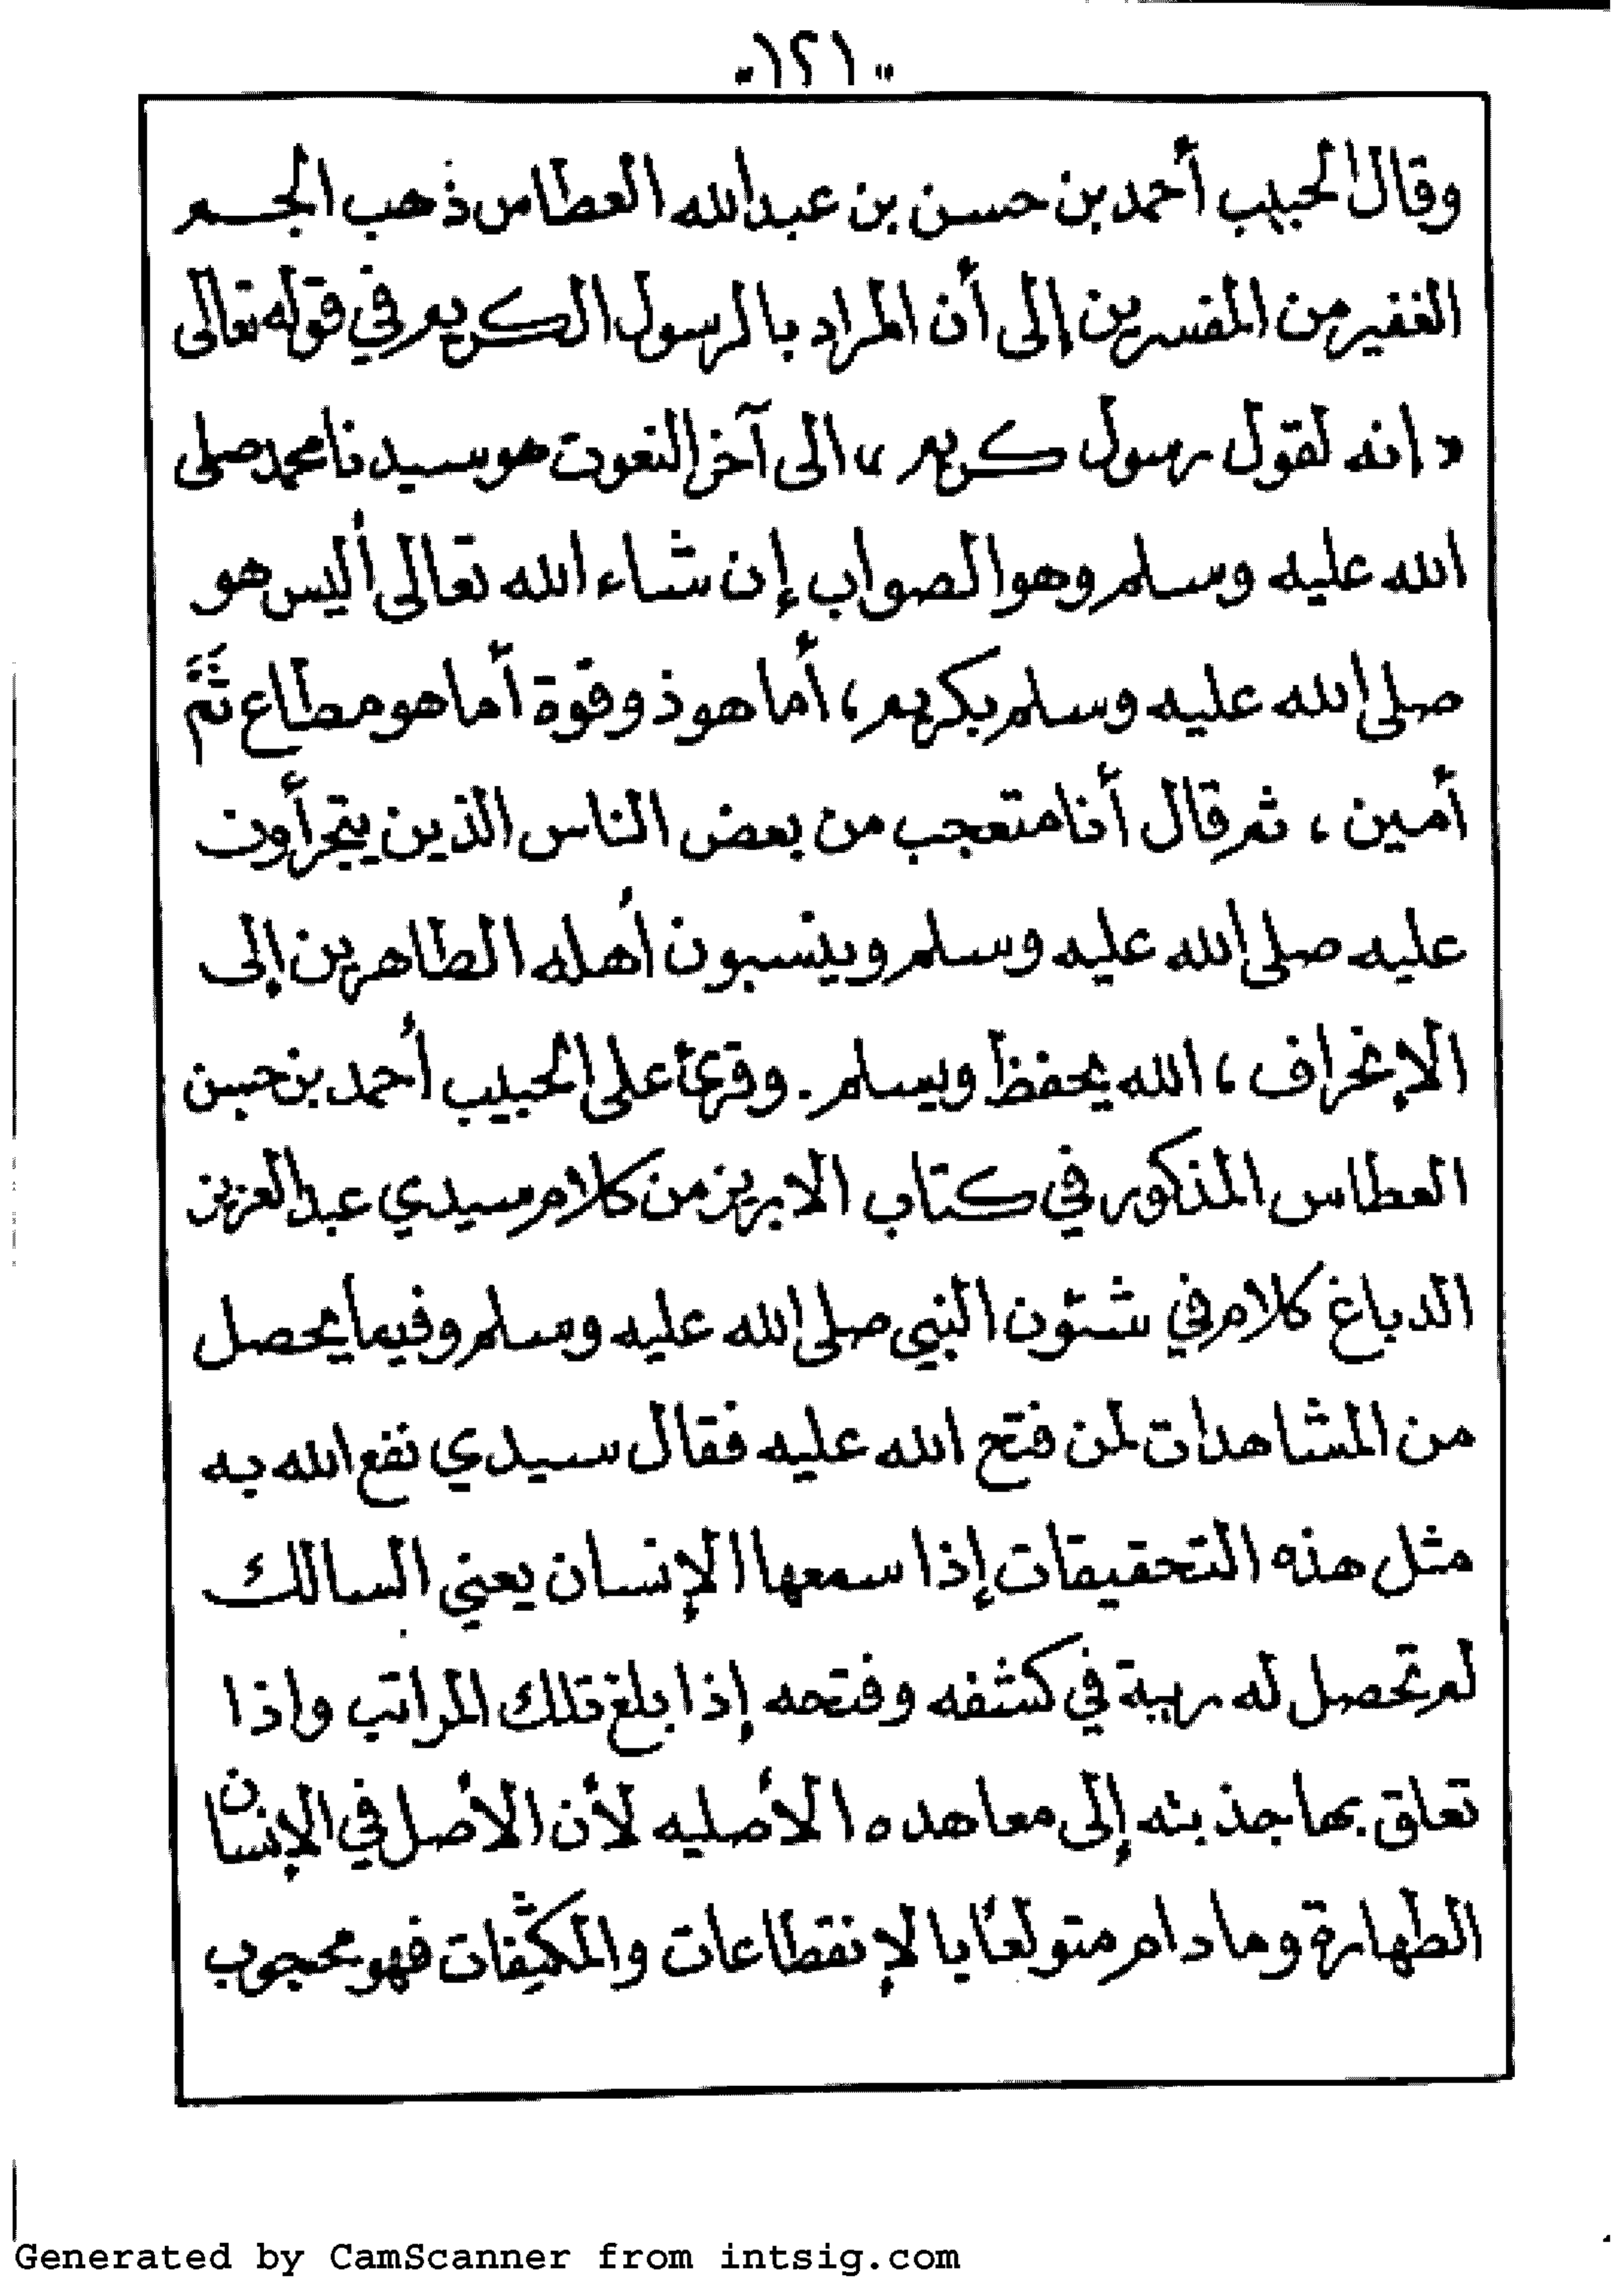 -١٢١-
وقال الحبيب أحمد بن حسن بن عبدالله العطاس ذهب الجم
الغفير من المفسرين إلى أن المراد بالرسول الكريم في قوله تعالى
«إنه لقول رسول كريم» الى آخر النعوت هو سيدنا محمد صلى
الله عليه وسلم وهو الصواب إن شاء الله تعالى أليس هو
صلى الله عليه وسلم بكريم، أما هو ذو قوة أما هو مطاع ثَمَّ
أمين، ثم قال أنا متعجب من بعض الناس الذين يتجرأون
عليه صلى الله عليه وسلم وينسبون أهله الطاهرين إلى
الإنحراف، الله يحفظ ويسلم. وقرئ على الحبيب أحمد بن حسن
العطاس المذكور في كتاب الابريز من كلام سيدي عبدالعزيز
الدباغ كلام في شئون النبي صلى الله عليه وسلم وفيما يحصل
من المشاهدات لمن فتح الله عليه فقال سيدي نفع الله به
مثل هذه التحقيقات إذا سمعها الإنسان يعني السالك
لم تحصل له ريبة في كشفه وفتحه إذا بلغ تلك المراتب وإذا
تعلق بها جذبته إلى معاهده الأصليه لأن الأصل في الإنسان
الطهارة وما دام متولعًا بالإنقطاعات والمكثفات فهو محجوب
Generated by CamScanner from intsig.com